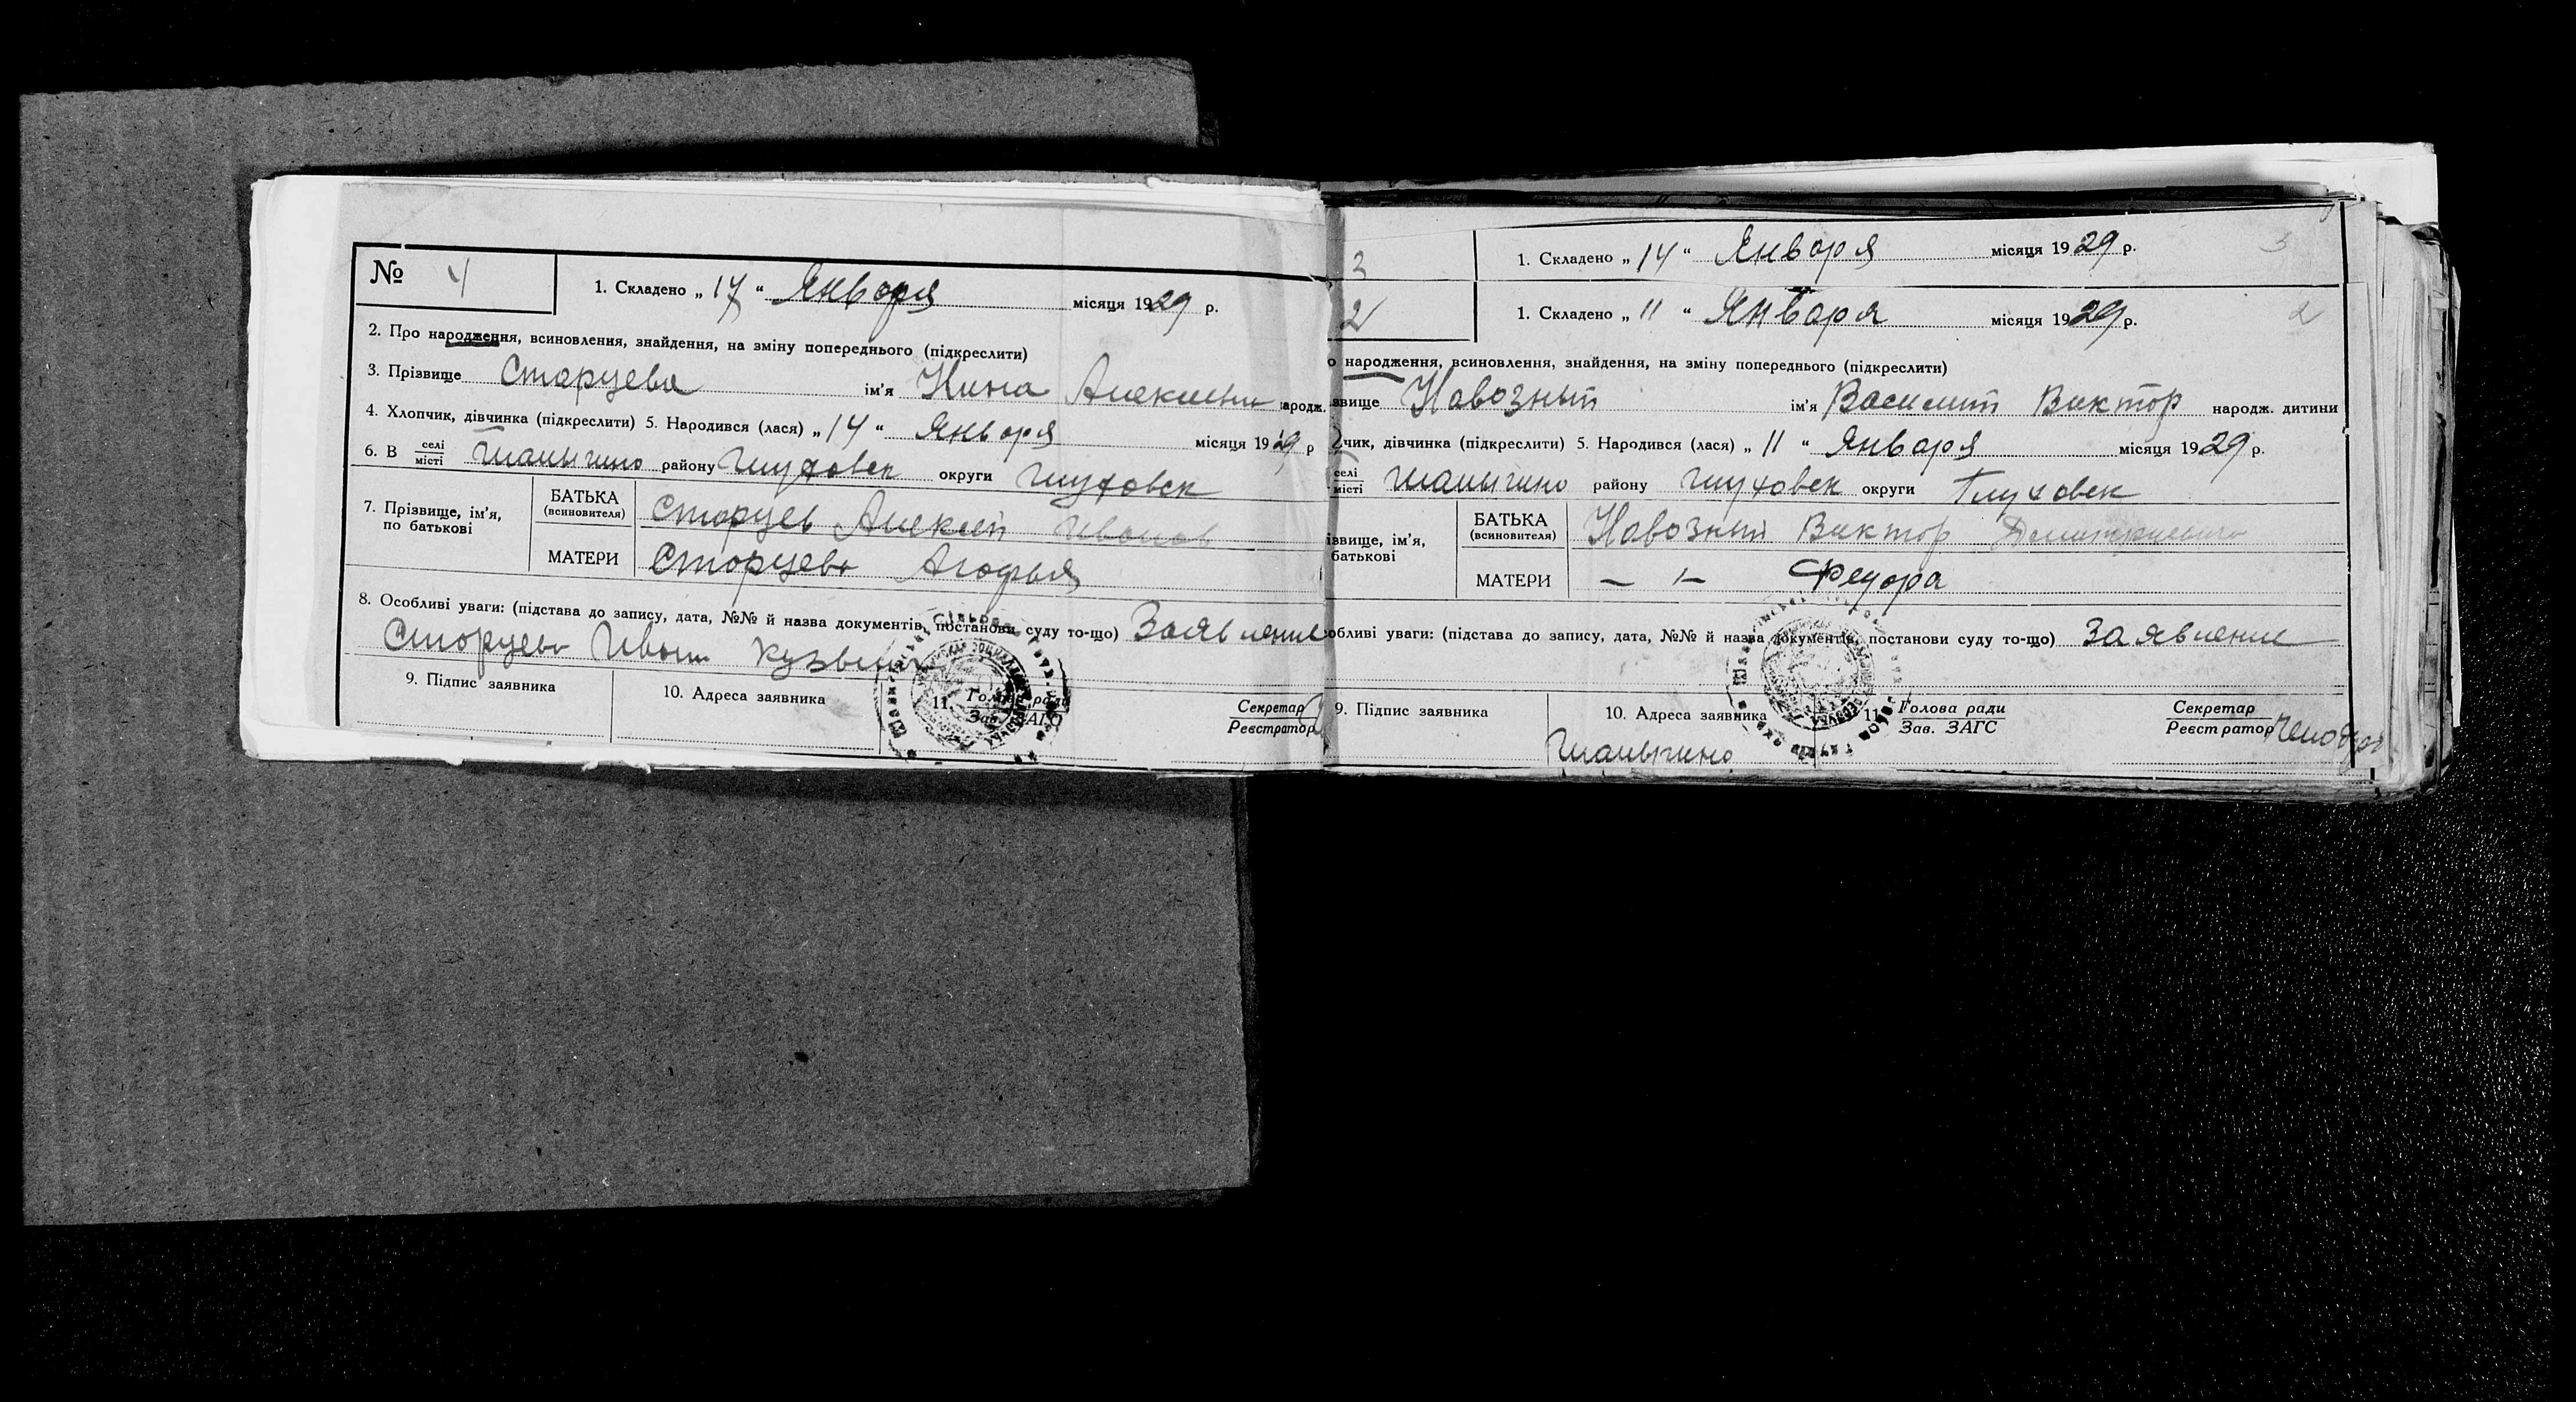 № 4
1. Складено „ 17 “ Января місяця 1929 р.
2. Про народження, всиновлення, знайдення, на зміну попереднього (підкреслити)
3. Прізвище Старцева ім'я Нина Алексеевн ародж.
4. Хлопчик, дівчинка (підкреслити) 5. Народився (лася) „ 14 “ Января місяця 1929 р
6. В селі місті Шалыгино району Глуховск округи Глуховск
7. Прізвище, ім'я, по батькові
БАТЬКА (всиновителя) Старцев Алексей Иванов
МАТЕРИ Старцева Агафья
8. Особливі уваги: (підстава до запису, дата, №№ й назва документів, постанови суду то-що) Заявление
Старцева Иван Кузьмич
9. Підпис заявника
10. Адреса заявника
11. Голова ради Зав. ЗАГС
Секретар Реєстратор
3
1. Складено „ 14 “ Января місяця 1929 р.
3
2
1. Складено „ 11 “ Января місяця 1929 р.
2
о народження, всиновлення, знайдення, на зміну попереднього (підкреслити)
звище Навозный ім'я Василий Виктор народж. дитини
чик, дівчинка (підкреслити) 5. Народився (лася) „ 11 “ Января місяця 1929 р.
селі місті Шалыгино району Глуховск округи Глуховск
ізвище, ім'я, батькові
БАТЬКА (всиновителя) Навозный Виктор
МАТЕРИ — " — Федора
обливі уваги: (підстава до запису, дата, №№ й назва документів, постанови суду то-що) Заявление
9. Підпис заявника
10. Адреса заявника
Шалыгино
11. Голова ради Зав. ЗАГС
Секретар Реєстратор